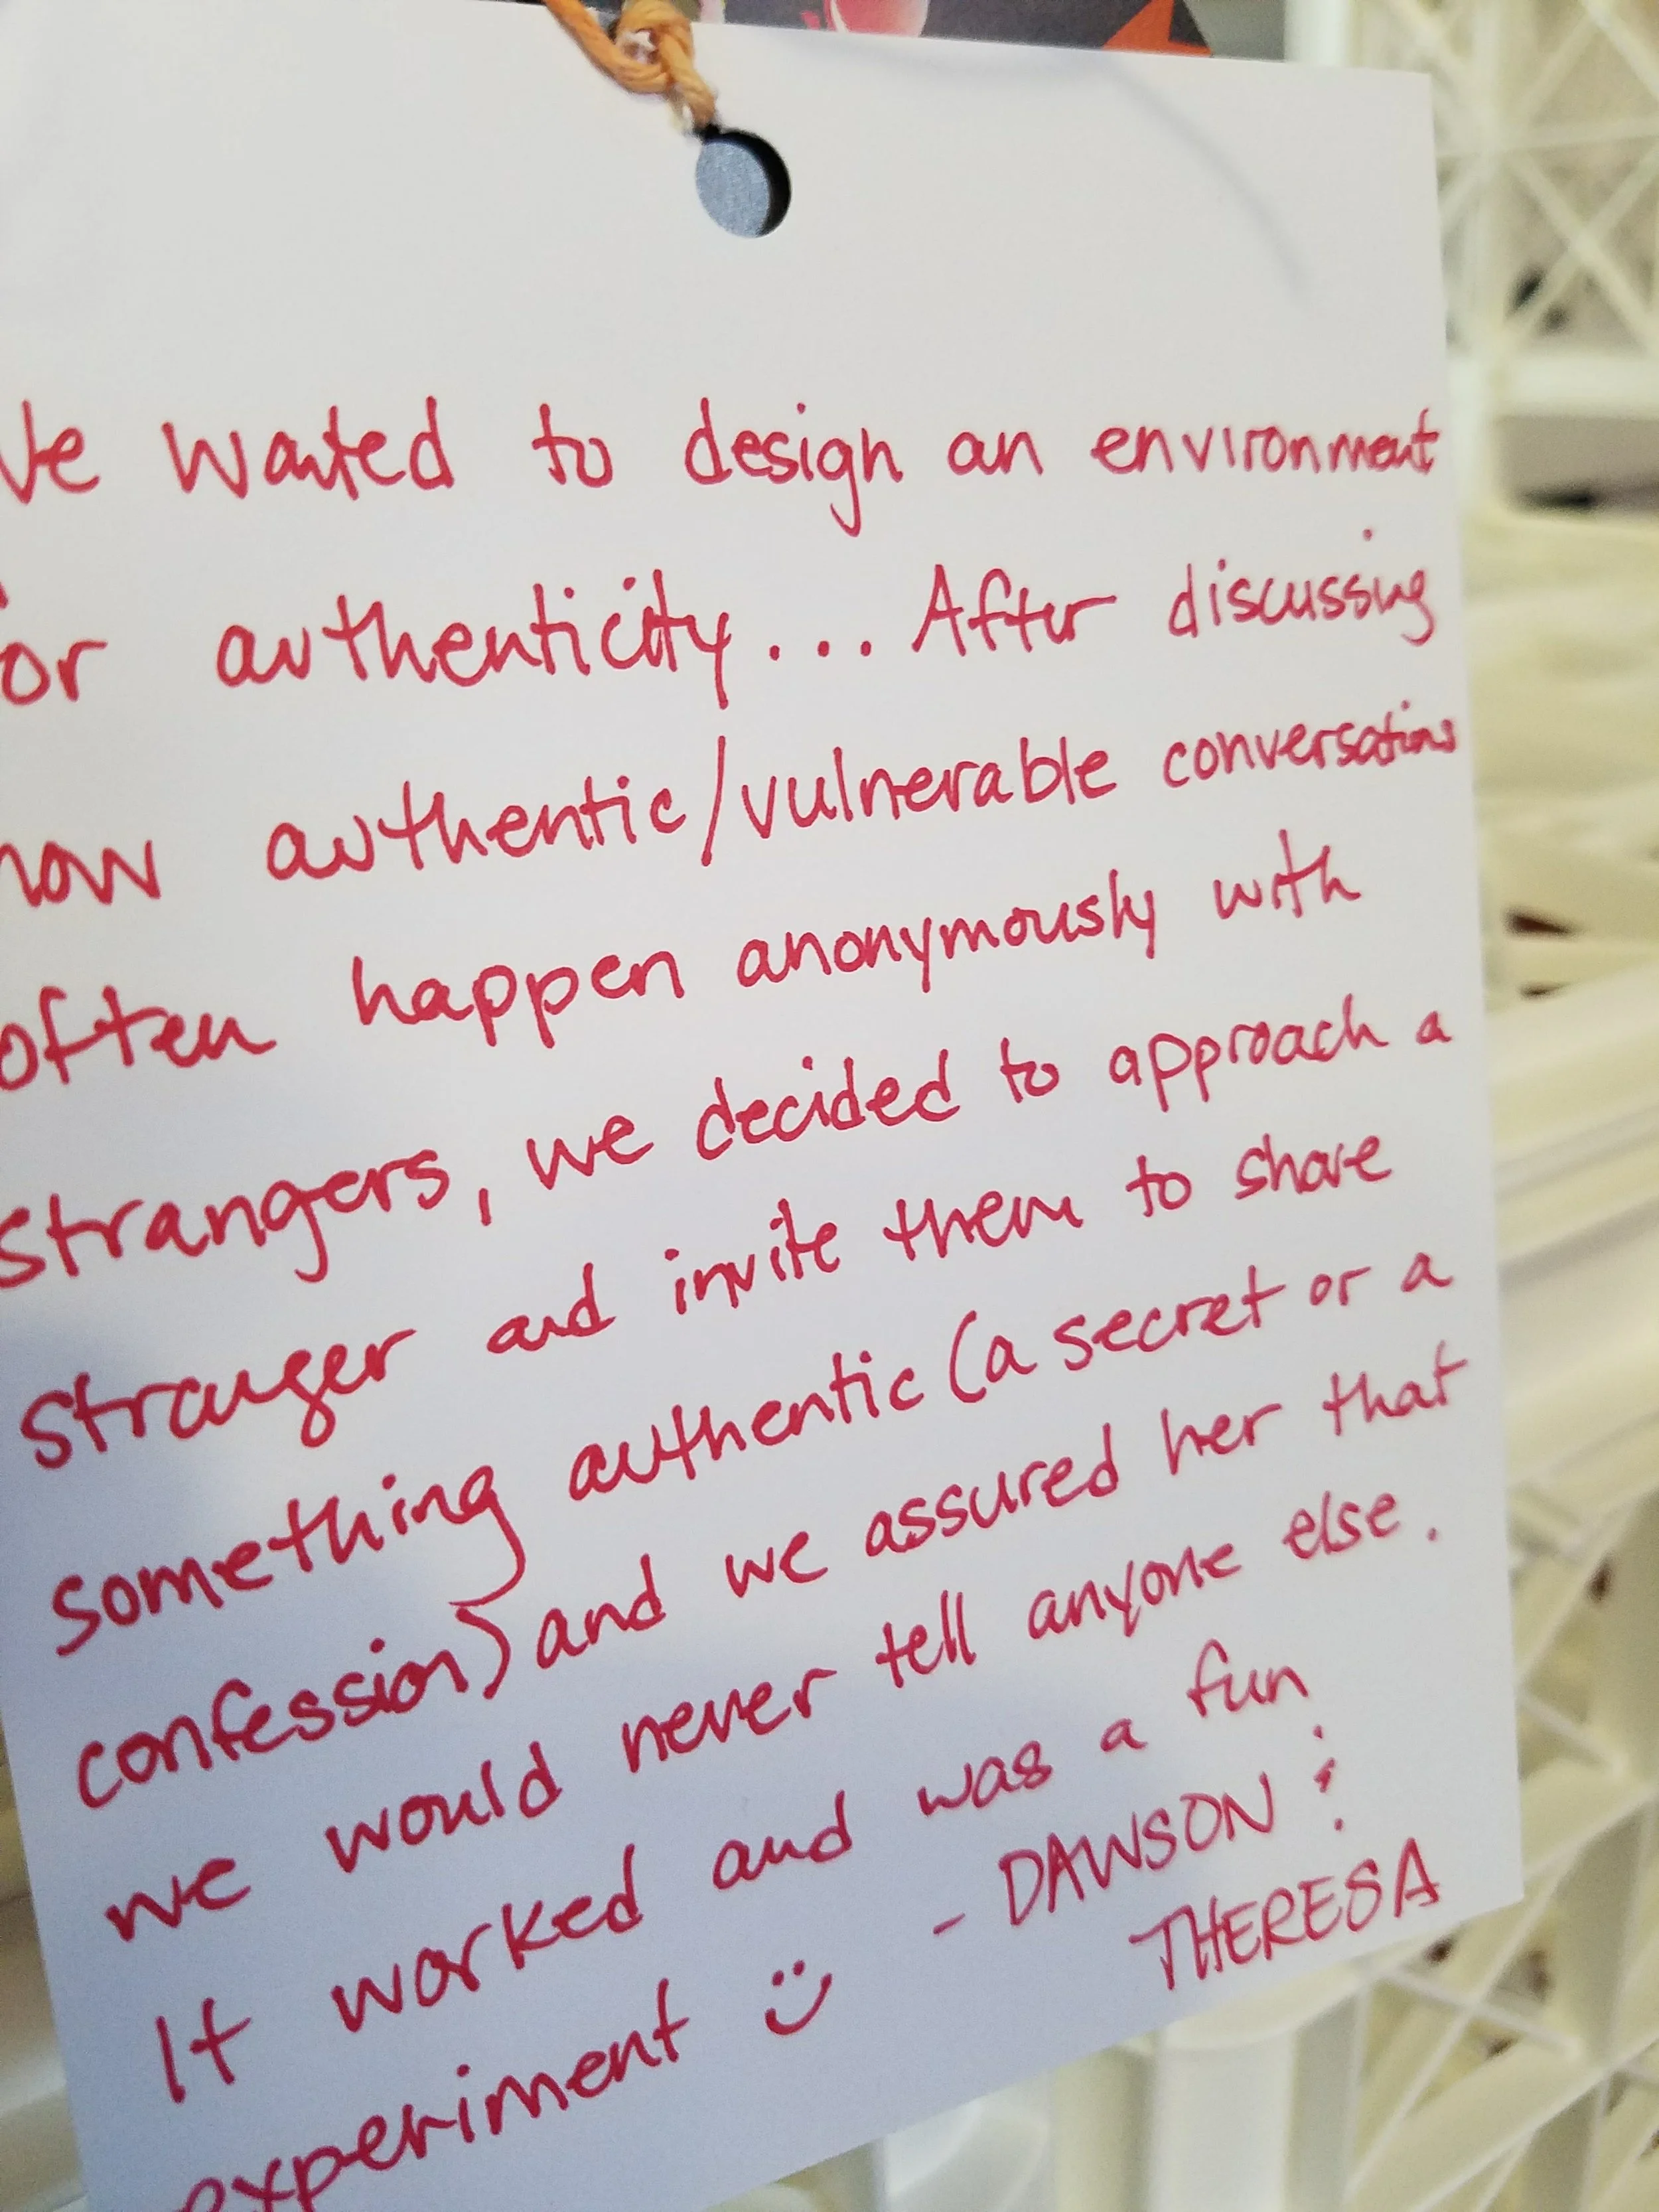 We wanted to design an environment
for authenticity... After discussing
how authentic/vulnerable conversations
often happen anonymously with
strangers, we decided to approach a
stranger and invite them to share
something authentic (a secret or a
confession) and we assured her that
we would never tell anyone else.
It worked and was a fun
experiment :) - DAWSON &
THERESA